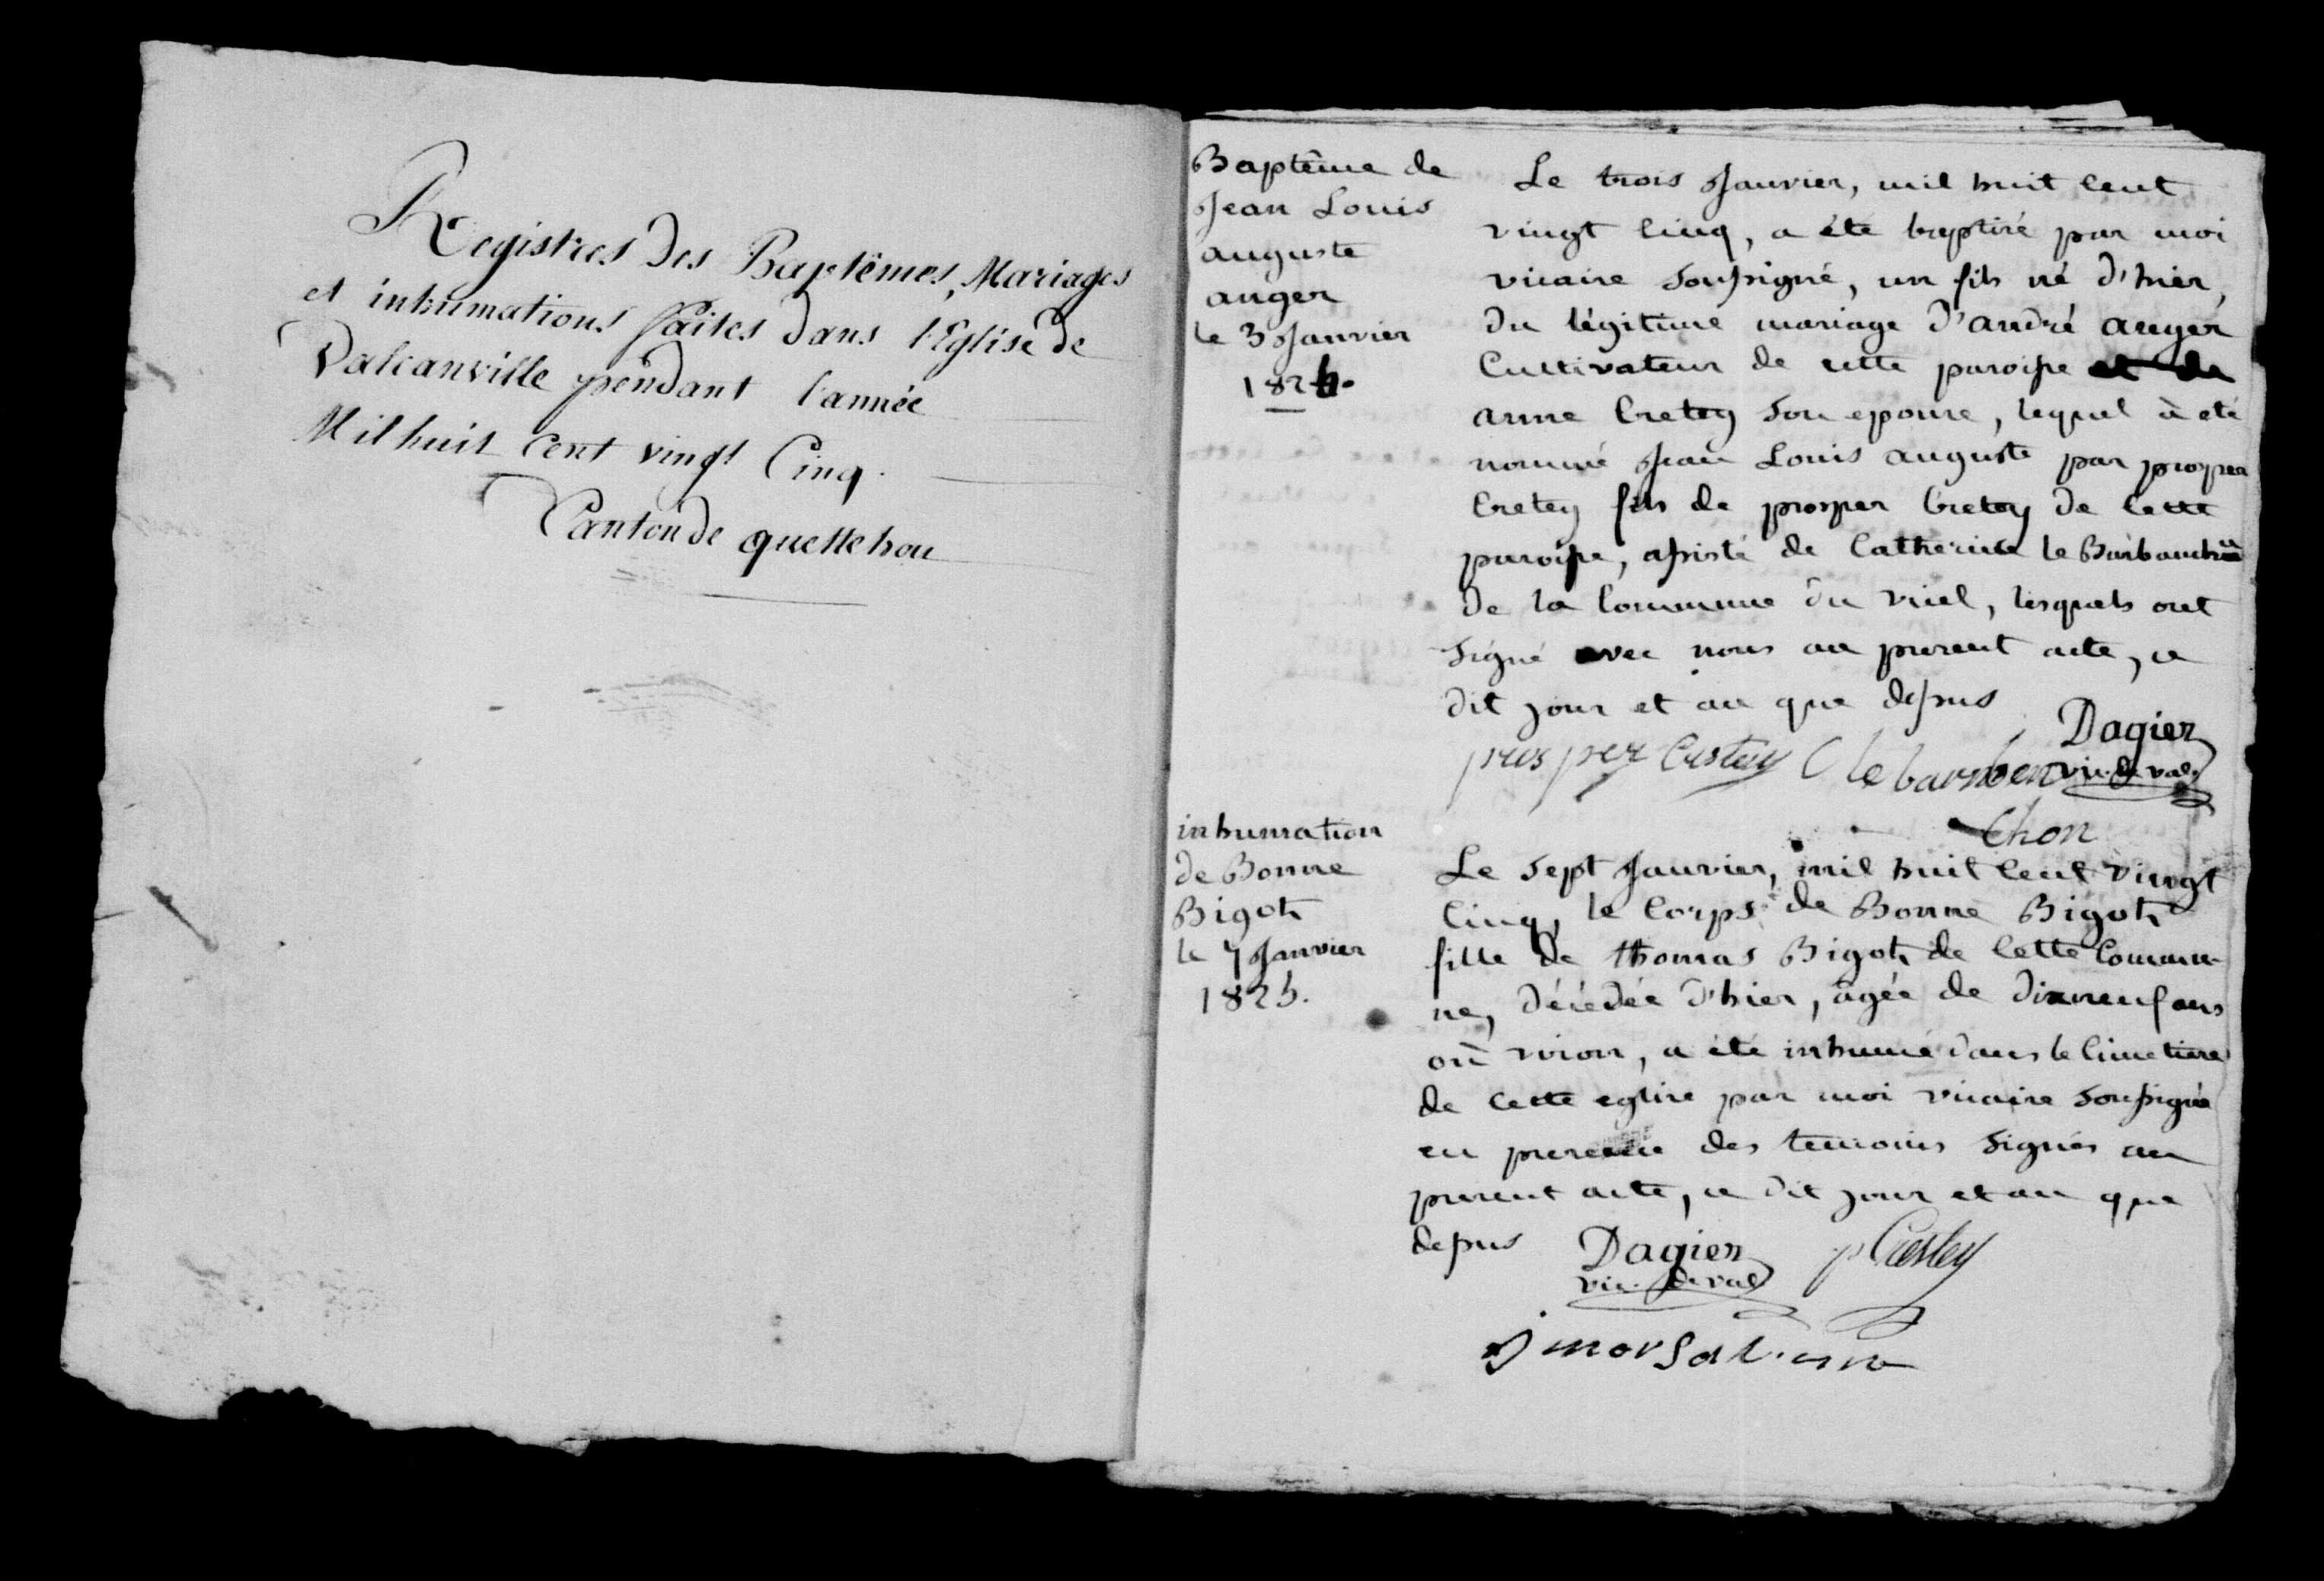 Registres des Baptêmes, Mariages
et inhumations faites dans l'Eglise de
Valcanville pendant l'année
Mil huit cent vingt Cinq.
Canton de quettehou
Baptême de
Jean Louis
auguste
auger
le 3 Janvier
1825.
Le trois Janvier, mil huit cent
vingt cinq, a été baptisé par moi
vicaire soussigné, un fils né d'hier,
du légitime mariage d'andré auger
Cultivateur de cette paroisse et de
anne Cretey son epouse, lequel à eté
nommé Jean Louis auguste par prosper
Cretey fils de prosper Cretey de cette
paroisse, assisté de Catherine le Barbanchon
de la Commune du viel, lesquels ont
signé avec nous au present acte, ce
dit jour et an que dessus
Dagier
vic. de val.
prosper Crestey C le barben
chon
inhumation
de Bonne
Bigot
le 7 Janvier
1825.
Le sept Janvier, mil huit cent vingt
cinq, le corps de Bonne Bigot
fille de thomas Bigot de cette Commu-
ne, décédée d'hier, âgée de dixneuf ans
où viron, a été inhumé dans le cimetiere
de cette eglise par moi vicaire soussigné
en presence des temoins signés au
present acte, ce dit jour et an que
dessus
Dagier
vic. de val
p Crestey